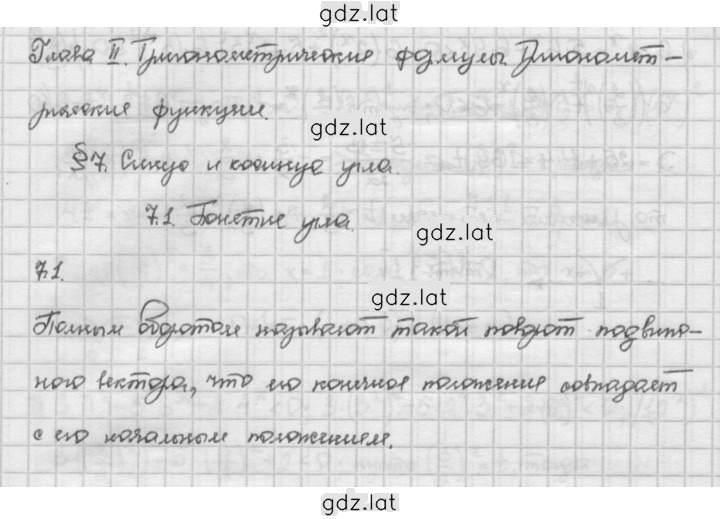 gdz.lat
Глава II. Тригонометрические формулы. Тригономет-
рические функции.
gdz.lat
§ 7. Синус и косинус угла.
7.1. Понятие угла.
gdz.lat
7.1.
gdz.lat
Полным оборотом называют такой поворот подвиж-
ного вектора, что его конечное положение совпадает
с его начальным положением.
gdz.lat